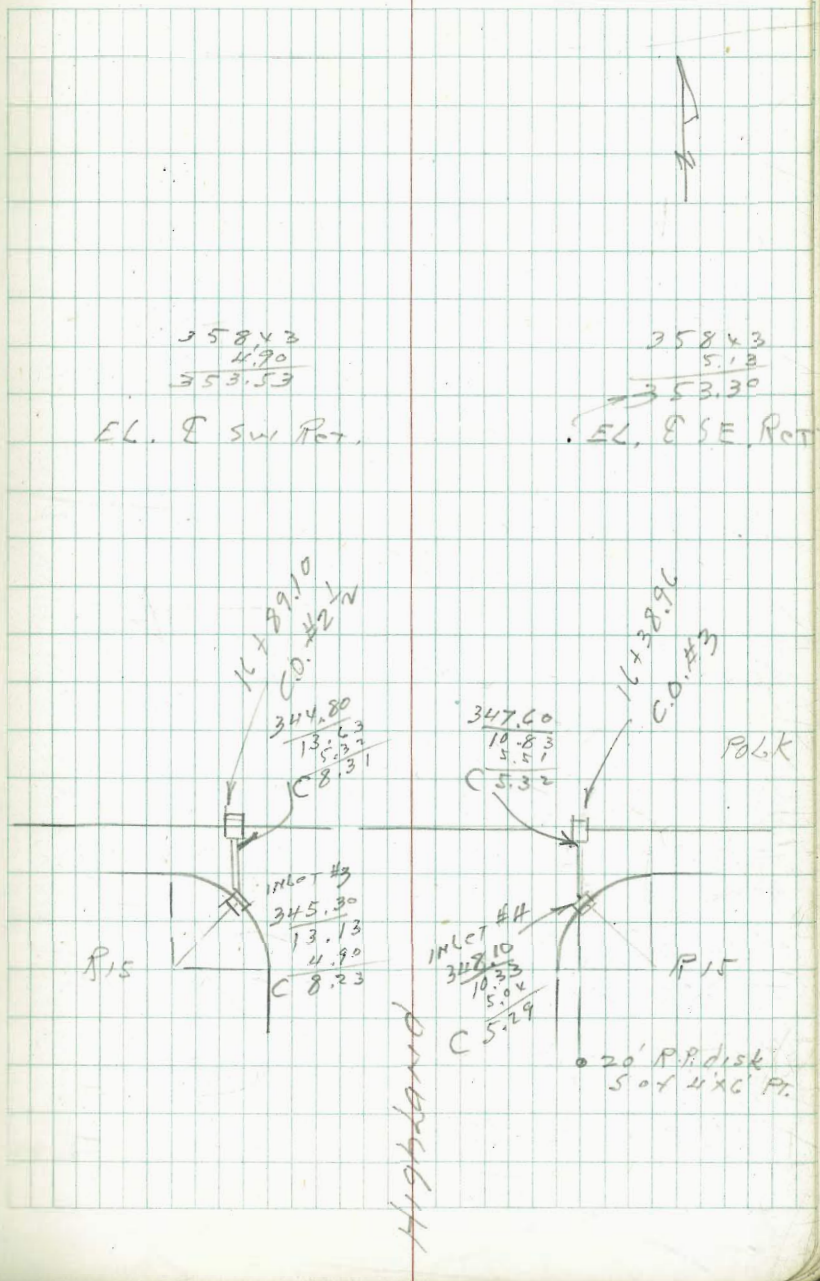 N
358.43
4.90
353.53
EL. ℄ SW Ret.
358.43
5.13
353.30
EL. ℄ SE. Ret
16+89.10
C.O. #2 1/2
344.80
13.63
5.32
C 8.31
347.60
10.83
5.51
C 5.32
16+38.96
C.O. #3
POLK
INLET #3
345.30
13.13
4.90
C 8.23
R15
INLET #4
348.10
10.33
5.04
C 5.29
R15
20' R.P. disk
S of 4x6 Pt.
Highland